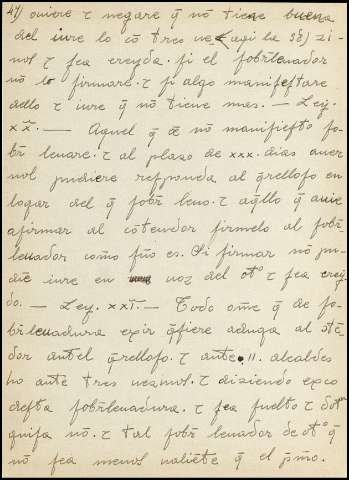 47) ouiere ⁊ negare q̃ nõ tiene buena
del iure lo cõ tres ue (aqi la 59) zi-
nos ⁊ sea creyda. si el sobrleuador
nõ lo firmare. ⁊ si algo manifestare
dello ⁊ iure q̃ nõ tiene mas. — Ley.
xx̃. — Aquel q̃ de nõ manifiesto so-
br̃ leuare. ⁊ al plazo de xxx. dias auer
nol pudiere responda al q̃relloso en
logar del q̃ sobr̃ leuo. ⁊ aq̃llo q̃ ouie
afirmar al cõtendor firmelo al sobr̃-
leuador como fuo es. Si firmar nõ pu-
diẽ iure en uoz del otº ⁊ sea crey-
do. — Ley. xxĩ. — Todo ome q̃ de so-
br̃leuadura exir q̃siere aduga al cõtẽ-
dor antel q̃relloso. ⁊ ante .II. alcaldes
ho ante tres uezinos. ⁊ diziendo exco
desta sobr̃leuadura. ⁊ sea suelto ⁊
quisa nõ. ⁊ tal sobr̃ leuador de otº q̃
nõ sea menos ualiẽte q̃ el p̃mo.